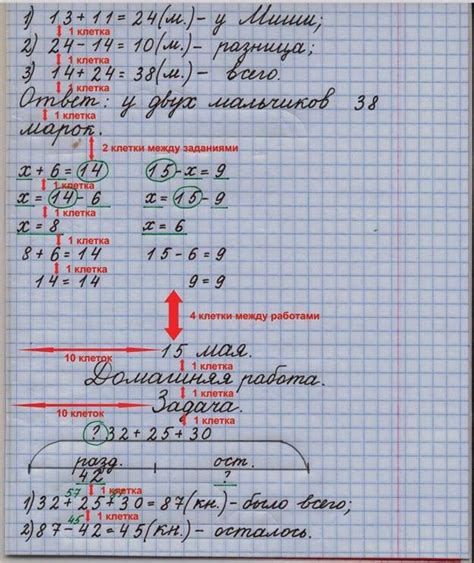 1) 13 + 11 = 24 (м.) - у Миши;
1 клетка
2) 24 - 14 = 10 (м.) - разница;
1 клетка
3) 14 + 24 = 38 (м.) - всего.
1 клетка
Ответ: у двух мальчиков 38
1 клетка
марок.
2 клетки между заданиями
x + 6 = 14 15 - x = 9
1 клетка
x = 14 - 6 x = 15 - 9
1 клетка
x = 8 x = 6
1 клетка
8 + 6 = 14 15 - 6 = 9
1 клетка
14 = 14 9 = 9
4 клетки между работами
15 мая.
10 клеток 1 клетка
Домашняя работа.
1 клетка
Задача.
10 клеток 1 клетка
? 32 + 25 + 30
разд. ост.
42 ?
57 1 клетка
1) 32 + 25 + 30 = 87 (кн.) - было всего;
45 1 клетка
2) 87 - 42 = 45 (кн.) - осталось.